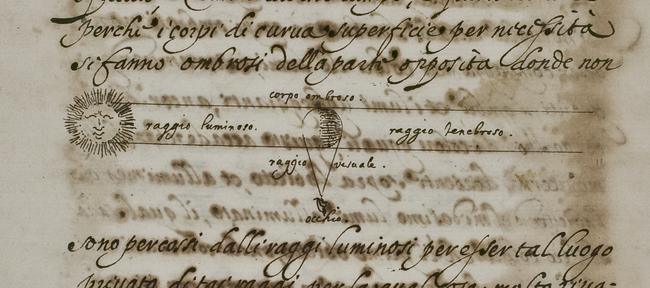 perche i corpi di curua superficie per necissità
si fanno ombrosi della parte opposita donde non
corpo ombroso.
raggio luminoso.
raggio tenebroso.
raggio visuale.
occhio.
sono percossi dalli raggi luminosi per esser tal luogo
priuato di tai raggi per la qual cosa molto